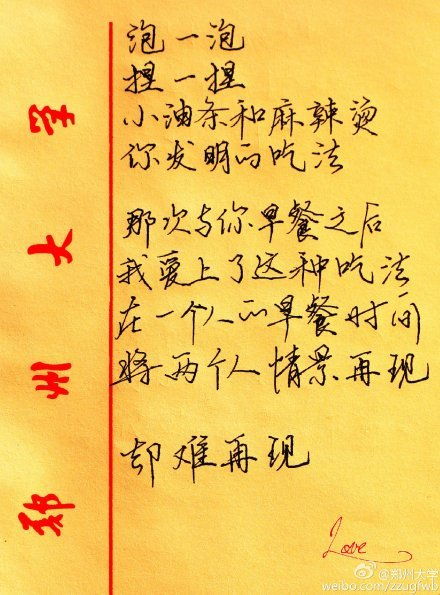 泡一泡
捏一捏
小油条和麻辣烫
你发明的吃法
那次与你早餐之后
我爱上了这种吃法
在一个人的早餐时间
将两个人情景再现
却难再现
郑州大学
Love
@郑州大学
weibo.com/zzugfwb